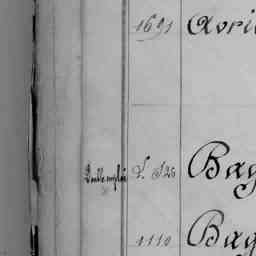 1691 Avri
Double emploi S. 526 Bag
1110 Bag